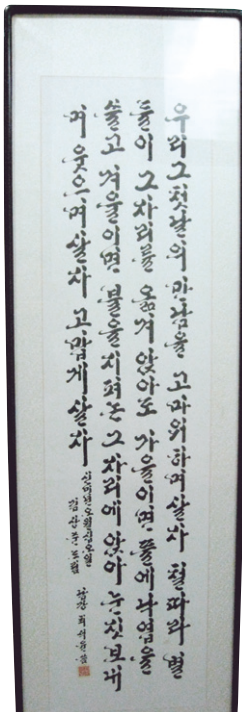 우리 그 첫날의 만남을 고마워하며 살자 철따라 별
들이 그 자리를 옮겨 앉아도 가을이면 풀에 낙엽을
쓸고 겨울이면 불을 지펴논 그 자리에 앉아 눈짓 보내
며 웃으며 살자 고맙게 살자
신묘년 오월 십오일